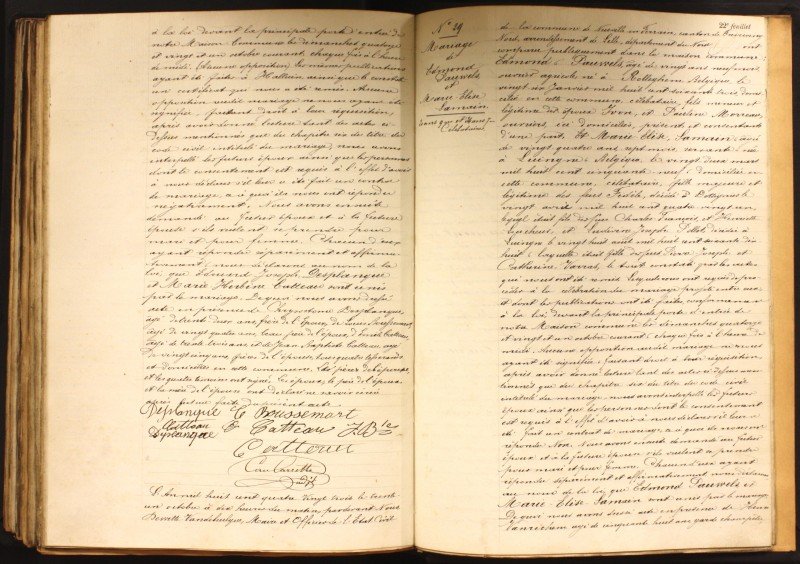 à la loi devant la principale porte d'entrée de
notre Maison Commune les dimanches quatorze
et vingt et un octobre courant chaque fois à l'heure
de midi. Aucune opposition les mêmes publications
ayant été faites à Halluin ainsi que le constate
un certificat qui nous a été remis. Aucune
opposition audit mariage ne nous ayant été
signifiée, faisant droit à leur réquisition,
après avoir donné lecture tant des actes ci-
dessus mentionnés que du chapitre six du titre du
code civil intitulé du mariage, nous avons
interpellé les futurs époux ainsi que les personnes
dont le consentement est requis à l'effet d'avoir
à nous déclarer s'il leur a été fait un contrat
de mariage, à quoi ils nous ont répondu
négativement. Nous avons ensuite
demandé au futur époux et à la future
épouse s'ils veulent se prendre pour
mari et pour femme. Chacun d'eux
ayant répondu séparément et affirma-
tivement, nous déclarons au nom de la
loi, que Edouard Joseph Desplanque
et Marie Catteau sont unis
par le mariage. De quoi nous avons dressé
acte en présence de Desplanque,
âgé de trente deux ans, frère de l'époux, de Louis Boussemart,
âgé de vingt quatre ans, beau frère de l'époux, Catteau,
âgé de trente et de Jean Baptiste Catteau, âgé
de vingt cinq ans, frères de l'épouse,
et domiciliés en cette commune. Le père de l'épouse
et les quatre témoins ont signé. Les époux, le père de l'époux
et la mère de l'épouse ont déclaré ne savoir
après lecture faite du présent acte.
Desplanque C Boussemart
Catteau Catteau J Bte
Desplanque
Catteau
L'An mil huit cent quatre vingt trois le trente
un octobre à dix heures du matin, pardevant Nous
Vandebeulque, Maire et Officier de l'Etat Civil
22e feuillet
N° 29
Mariage
de
Edmond
Pauwels
et
Marie Elise
Samain
de la commune de Neuville en Ferrain, canton de Tourcoing
Nord, arrondissement de Lille, département du Nord, ont
comparu publiquement dans la maison commune:
Edmond Pauwels, âgé de vingt ans neuf mois
ouvrier agricole né à Rolleghem, Belgique le
vingt six Janvier mil huit cent soixante trois domi-
cilié en cette commune, célibataire, fils mineur et
légitime des époux Yvon, et Pauline Moreau,
ouvriers, ici domiciliés, présents et consentants
d'une part. Et Marie Elise Samain, âgée
de vingt quatre ans sept mois, servante née
à Luingne, Belgique le vingt deux mars
mil huit cent cinquante neuf, domiciliée en
cette commune, célibataire, fille majeure et
légitime des feus décédé à
vingt avril mil huit cent quatre vingt un,
lequel était fils des feus Charles François et
et Joseph décédée à
Luingne le vingt huit août mil huit cent soixante dix
huit, laquelle était fille des feus Pierre Joseph et
Catherine
qui nous ont été remis. Lesquels nous ont requis de pro-
céder à la célébration du mariage projeté entre eux
et dont les publications ont été faites conformément
à la loi devant la principale porte d'entrée de
notre Maison commune les dimanches quatorze
et vingt et un octobre courant, chaque fois à l'heure de
midi. Aucune opposition audit mariage ne nous
ayant été signifiée, faisant droit à leur réquisition,
après avoir donné lecture tant des actes ci dessus men-
tionnés que du chapitre six du titre du code civil
intitulé du mariage, nous avons interpellé les futurs
époux ainsi que les personnes dont le consentement
est requis à l'effet d'avoir à nous déclarer s'il leur a
été fait un contrat de mariage, à quoi ils nous ont
répondu Non. Nous avons ensuite demandé au futur
époux et à la future épouse s'ils veulent se prendre
pour mari et pour femme. Chacun d'eux ayant
répondu séparément et affirmativement nous déclarons
au nom de la loi que Edmond Pauwels et
Marie Elise Samain sont unis par le mariage
De quoi nous avons dressé acte en présence de
âgé de cinquante huit ans garde champêtre